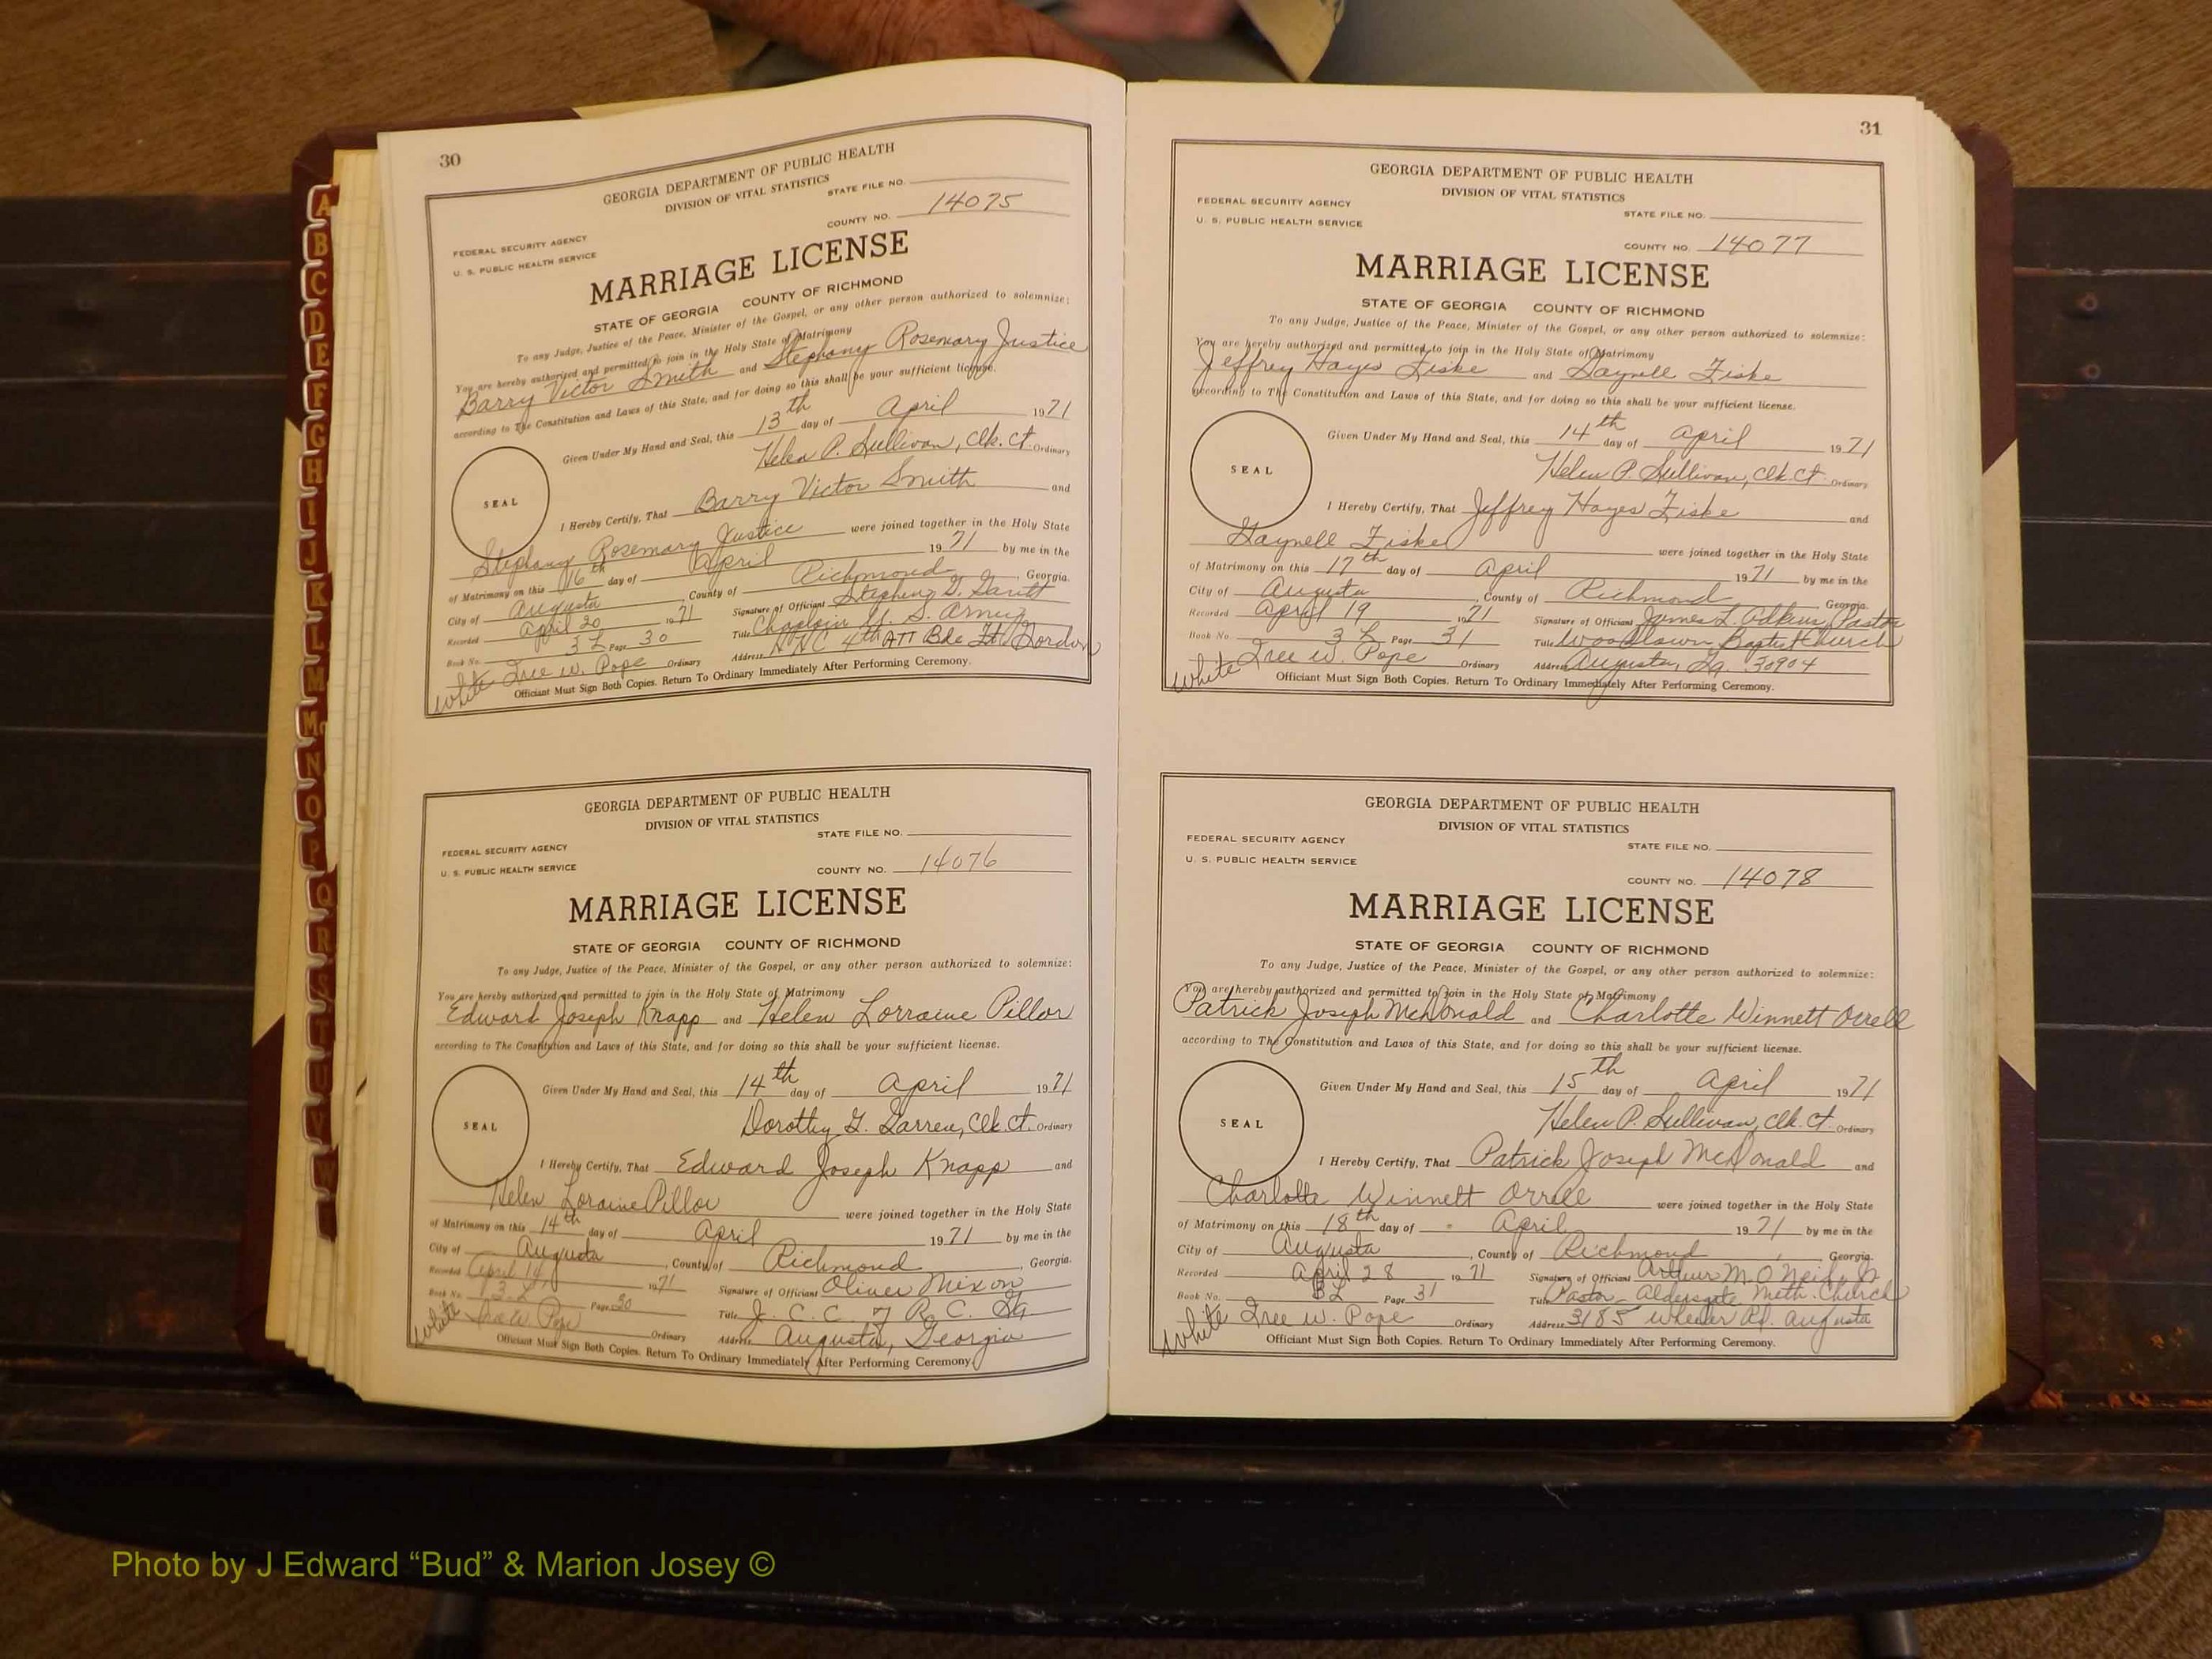 30
GEORGIA DEPARTMENT OF PUBLIC HEALTH
DIVISION OF VITAL STATISTICS
STATE FILE NO.
COUNTY NO. 14075
FEDERAL SECURITY AGENCY
U. S. PUBLIC HEALTH SERVICE
MARRIAGE LICENSE
STATE OF GEORGIA COUNTY OF RICHMOND
To any Judge, Justice of the Peace, Minister of the Gospel, or any other person authorized to solemnize:
You are hereby authorized and permitted to join in the Holy State of Matrimony
Barry Victor Smith and Stephany Rosemary Justice
according to The Constitution and Laws of this State, and for doing so this shall be your sufficient license.
Given Under My Hand and Seal, this 13th day of April 1971
Helen P. Sullivan, Clk. Ct. Ordinary
SEAL
I Hereby Certify, That Barry Victor Smith and
Stephany Rosemary Justice were joined together in the Holy State
of Matrimony on this 16th day of April 1971 by me in the
City of Augusta, County of Richmond, Georgia.
Recorded April 20 1971 Signature of Officiant
Book No. 3L Page 30 Title Chaplain U. S. Army
Tree W. Pope Ordinary Address HHC 4th ATT Bde Ft. Gordon
White Officiant Must Sign Both Copies. Return To Ordinary Immediately After Performing Ceremony.
GEORGIA DEPARTMENT OF PUBLIC HEALTH
DIVISION OF VITAL STATISTICS
STATE FILE NO.
FEDERAL SECURITY AGENCY
U. S. PUBLIC HEALTH SERVICE
COUNTY NO. 14076
MARRIAGE LICENSE
STATE OF GEORGIA COUNTY OF RICHMOND
To any Judge, Justice of the Peace, Minister of the Gospel, or any other person authorized to solemnize:
You are hereby authorized and permitted to join in the Holy State of Matrimony
Edward Joseph Knapp and Helen Lorraine Pillor
according to The Constitution and Laws of this State, and for doing so this shall be your sufficient license.
Given Under My Hand and Seal, this 14th day of April 1971
Dorothy G. Clk. Ct. Ordinary
SEAL
I Hereby Certify, That Edward Joseph Knapp and
Helen Loraine Pillor were joined together in the Holy State
of Matrimony on this 14th day of April 1971 by me in the
City of Augusta, County of Richmond, Georgia.
Recorded April 14 1971 Signature of Officiant Oliver Mixon
Book No. 3L Page 30 Title J. C. C. of R. C. Ga
Tree W. Pope Ordinary Address Augusta, Georgia
White Officiant Must Sign Both Copies. Return To Ordinary Immediately After Performing Ceremony.
31
GEORGIA DEPARTMENT OF PUBLIC HEALTH
DIVISION OF VITAL STATISTICS
FEDERAL SECURITY AGENCY
U. S. PUBLIC HEALTH SERVICE
STATE FILE NO.
COUNTY NO. 14077
MARRIAGE LICENSE
STATE OF GEORGIA COUNTY OF RICHMOND
To any Judge, Justice of the Peace, Minister of the Gospel, or any other person authorized to solemnize:
You are hereby authorized and permitted to join in the Holy State of Matrimony
Jeffrey Hayes Fiske and Gaynell Fiske
according to The Constitution and Laws of this State, and for doing so this shall be your sufficient license.
Given Under My Hand and Seal, this 14th day of April 1971
Helen P. Sullivan, Clk. Ct. Ordinary
SEAL
I Hereby Certify, That Jeffrey Hayes Fiske and
Gaynell Fiske were joined together in the Holy State
of Matrimony on this 17th day of April 1971 by me in the
City of Augusta, County of Richmond, Georgia.
Recorded April 19 1971 Signature of Officiant James L. Adkins, Pastor
Book No. 3L Page 31 Title Woodlawn Baptist Church
Tree W. Pope Ordinary Address Augusta, Ga. 30904
White Officiant Must Sign Both Copies. Return To Ordinary Immediately After Performing Ceremony.
GEORGIA DEPARTMENT OF PUBLIC HEALTH
DIVISION OF VITAL STATISTICS
FEDERAL SECURITY AGENCY
STATE FILE NO.
U. S. PUBLIC HEALTH SERVICE
COUNTY NO. 14078
MARRIAGE LICENSE
STATE OF GEORGIA COUNTY OF RICHMOND
To any Judge, Justice of the Peace, Minister of the Gospel, or any other person authorized to solemnize:
You are hereby authorized and permitted to join in the Holy State of Matrimony
Patrick Joseph McDonald and Charlotte Winnett Orrell
according to The Constitution and Laws of this State, and for doing so this shall be your sufficient license.
Given Under My Hand and Seal, this 15th day of April 1971
Helen P. Sullivan, Clk. Ct. Ordinary
SEAL
I Hereby Certify, That Patrick Joseph McDonald and
Charlotte Winnett Orrell were joined together in the Holy State
of Matrimony on this 18th day of April 1971 by me in the
City of Augusta, County of Richmond, Georgia.
Recorded April 28 1971 Signature of Officiant Arthur M. O'Neil, Jr
Book No. 3L Page 31 Title Pastor - Aldersgate Meth. Church
Tree W. Pope Ordinary Address 3185 Wheeler Rd. Augusta
White Officiant Must Sign Both Copies. Return To Ordinary Immediately After Performing Ceremony.
A
B
C
D
E
F
G
H
I
J
K
L
M
Mc
N
O
P
Q
R
S
T
U
V
W
Photo by J Edward “Bud” & Marion Josey ©